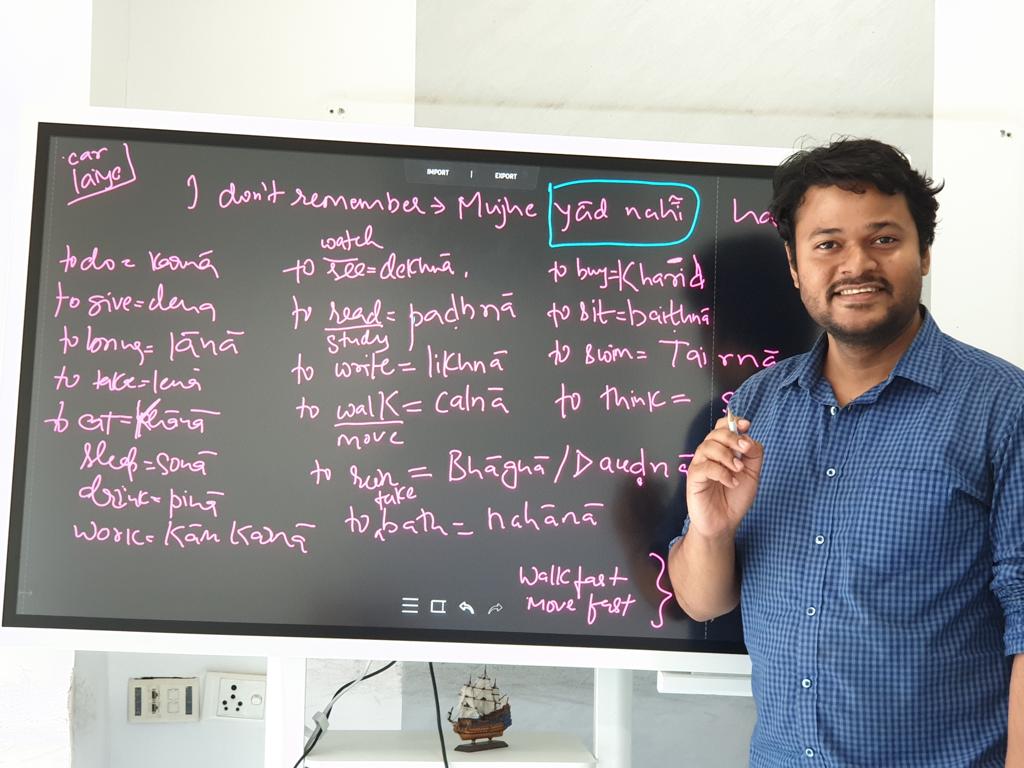 car
laiye
IMPORT | EXPORT
I don't remember → Mujhe yād nahī̃
to do = karnā
to give = dena
to bring = lānā
to take = lenā
to eat = Khānā
sleep = sonā
drink = pinā
work = Kām Karnā
watch
to see = dekhnā,
to read = paḍhnā
study
to write = likhnā
to walk = calnā
move
to run = Bhāgnā / Dauḍnā
take
to bath = nahānā
to buy = Kharīd
to sit = baiṭhnā
to swim = Tairnā
to think =
walk fast
move fast